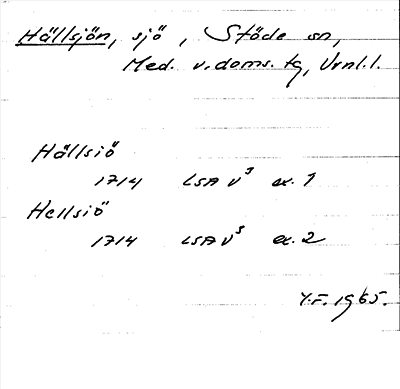 Hällsjön, sjö, Stöde sn,
Med. v. doms. tg, Vrnl. l.
Hällsiö
1714 LSA V³ ex. 1
Hellsiö
1714 LSA V³ ex. 2
Y.F. 1965.